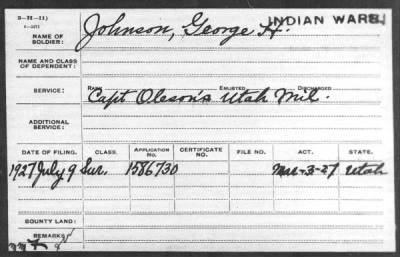 3-21-11)
INDIAN WARS.
NAME OF SOLDIER: Johnson, George H.
NAME AND CLASS OF DEPENDENT:
RANK ENLISTED DISCHARGED
SERVICE: Capt Oleson's Utah Mil.
ADDITIONAL SERVICE:
DATE OF FILING. CLASS. APPLICATION No. CERTIFICATE No. FILE NO. ACT. STATE.
1927 July 9 Sur. 1586730 Mar-3-27 Utah
BOUNTY LAND:
REMARKS: